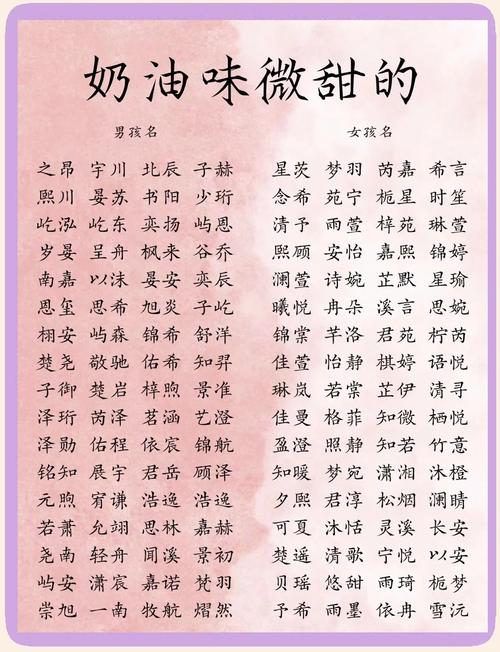 奶油味微甜的
男孩名 女孩名
之昂 宇川 北辰 子赫 星茨 梦羽 芮嘉 希言
熙川 晏苏 书阳 少珩 念希 苑宁 栀星 时笙
屹泓 屹东 奕扬 屿恩 清予 雨萱 梓苑 琳萱
岁晏 呈舟 枫来 谷乔 熙顾 安怡 嘉熙 锦婷
南嘉 以沫 晏安 奕辰 澜萱 诗婉 芷默 星瑜
恩玺 思希 旭炎 子屹 曦悦 冉朵 溪言 思婉
栩安 屿森 锦希 舒洋 锦棠 芊洛 君苑 柠芮
楚尧 敬驰 佑希 知羿 佳萱 怡静 棋婷 语悦
子御 楚岩 梓煦 景准 琳岚 若棠 芷伊 清寻
泽珩 芮泽 茗涵 艺澄 佳曼 格菲 知微 栖悦
泽勋 佑程 依宸 锦航 盈澄 照静 知若 竹意
铭知 展宇 君岳 顾泽 知暖 梦宛 潇湘 沐橙
元煦 宥谦 浩逸 浩逸 夕熙 君淳 松烟 澜晴
若萧 允翊 思林 嘉赫 可夏 沐恬 灵溪 长安
尧南 轻舟 闻溪 景初 楚遥 清歌 宁悦 以安
屿安 潇宸 嘉诺 梵羽 贝瑶 悠甜 雨琦 栀梦
崇旭 一南 牧航 熠然 予希 雨墨 依冉 雪沅